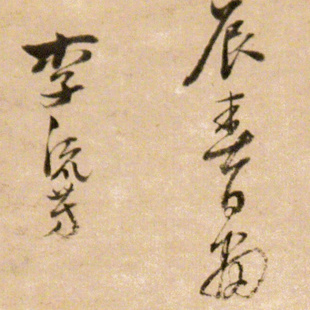 辰春日
李流芳